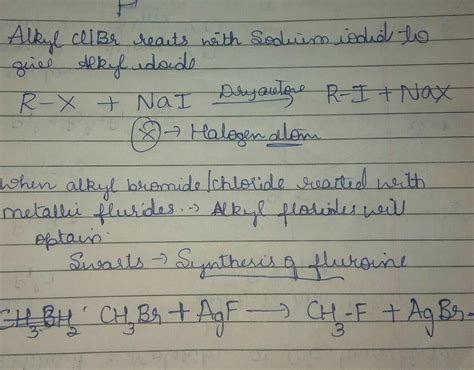 Alkyl Cl/Br reacts with Sodium iodid to
give Alkyl idoide
R-X + NaI Dry acetone → R-I + NaX
X → Halogen atom
When alkyl bromide/chloride reacted with
metallic flurides → Alkyl florides will
optain
Swarts → Synthesis of fluroine
CH₃BH₂ CH₃Br + AgF → CH₃-F + AgBr